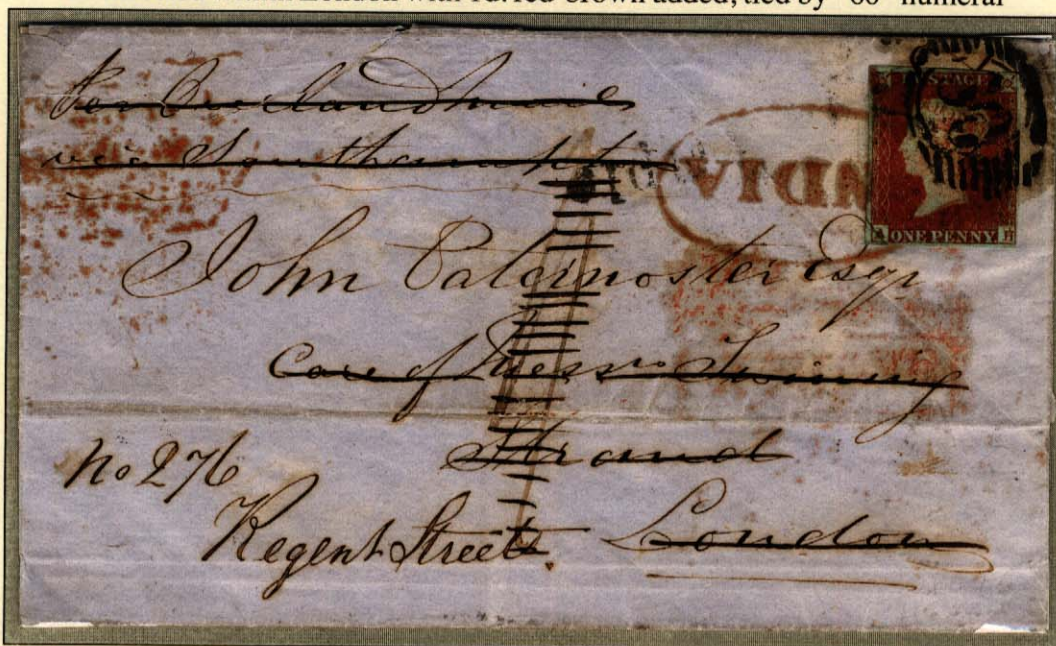 London with 1d red-brown added, tied by "66" numeral
Per Overland Mail
via Southampton
INDIA
POSTAGE
ONE PENNY
A H
John Paternoster Esqr
Care of Messrs Twining
Strand
No 276
Regent Street.
London